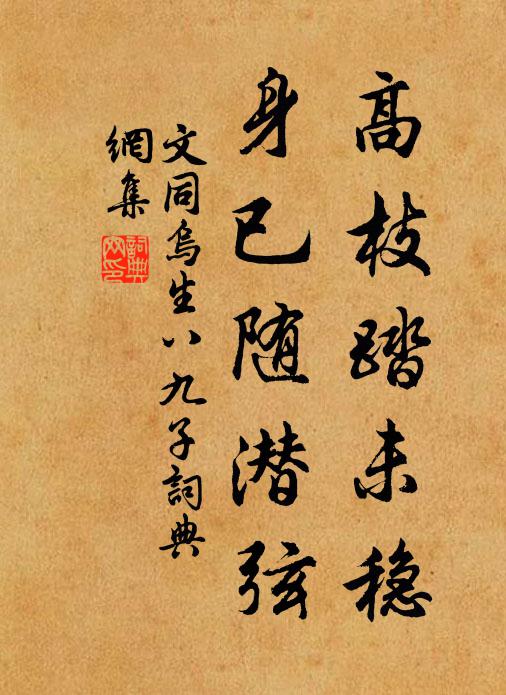 高枝踏未稳
身已随潜弦
文同乌生八九子词典
網集
词典网印